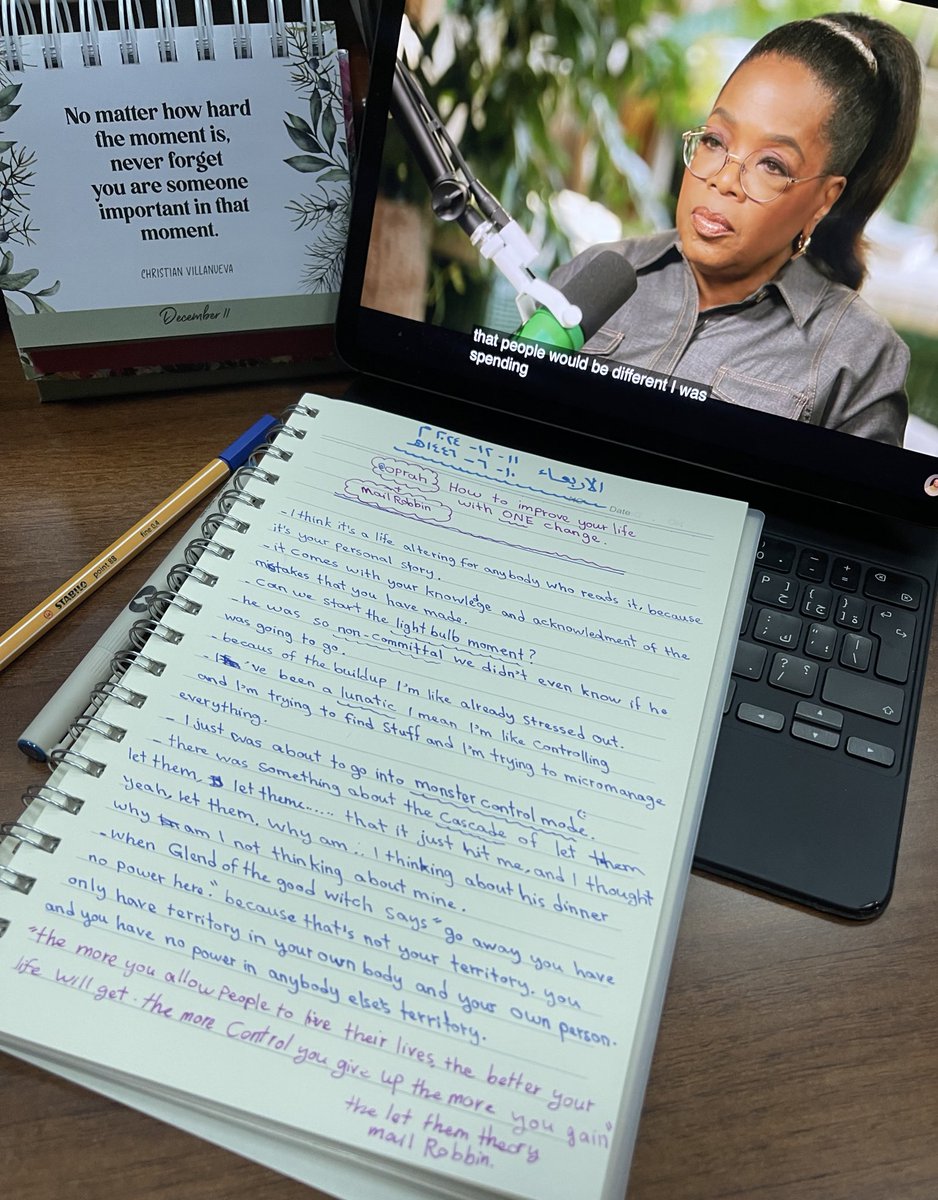 No matter how hard
the moment is,
never forget
you are someone
important in that
moment.
CHRISTIAN VILLANUEVA
December 11
that people would be different I was
spending
STABILO point 88 fine 0.4
الاربعاء ١١-١٢-٢٠٢٤ م
١٠-٦-١٤٤٦هـ
Date
@oprah } How to improve your life
+
Mail Robbin with ONE change.
- I think it's a life altering for anybody who reads it, because
it's your personal story.
- it comes with your knowledge and acknowledment of the
mistakes that you have made.
- can we start the light bulb moment?
- he was so non-committal we didn't even know if he
was going to go.
- becaus of the buildup I'm like already stressed out.
- I've been a lunatic I mean I'm like controlling
and I'm trying to find Stuff and I'm trying to micromanage
everything.
- I just was about to go into monster control mode.
- there was something about the cascade of let them
let them, let them..... that it just hit me, and I thought
yeah, let them. why am .. I thinking about his dinner
why am I not thinking about mine.
- when Glend of the good witch says "go away you have
no power here." because that's not your territory. you
only have territory in your own body and your own person.
and you have no power in anybody else's territory.
"the more you allow people to live their lives, the better your
life will get. the more Control you give up the more you gain"
the let them theory
mail Robbin.